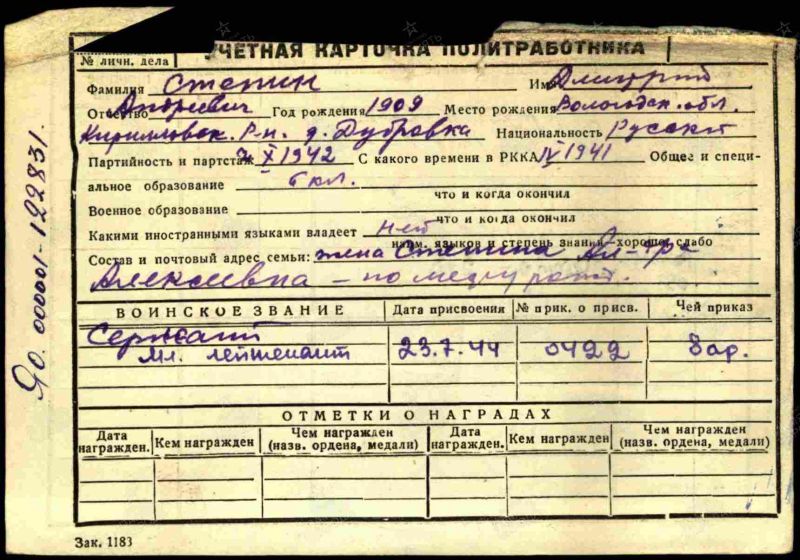 УЧЕТНАЯ КАРТОЧКА ПОЛИТРАБОТНИКА
№ личн. дела
Фамилия Степин Имя Дмитрий
Отчество Андреевич Год рождения 1909 Место рождения Вологодск. обл.
Кирилловск. р-н. д. Дубровка Национальность Русский
Партийность и партстаж X 1942 С какого времени в РККА IV 1941 Общее и специ-
альное образование 6 кл.
что и когда окончил
Военное образование
что и когда окончил
Какими иностранными языками владеет нет
наим. языков и степень знания—хорошо, слабо
Состав и почтовый адрес семьи: жена Степина Ал-ра
Алексеевна – по месту
ВОИНСКОЕ ЗВАНИЕ Дата присвоения № прик. о присв. Чей приказ
Сержант
Мл. лейтенант 23.7.44 0422
ОТМЕТКИ О НАГРАДАХ
Дата награжден. Кем награжден Чем награжден (назв. ордена, медали) Дата награжден. Кем награжден Чем награжден (назв. ордена, медали)
Зак. 1183
Яо. 000001-122831.